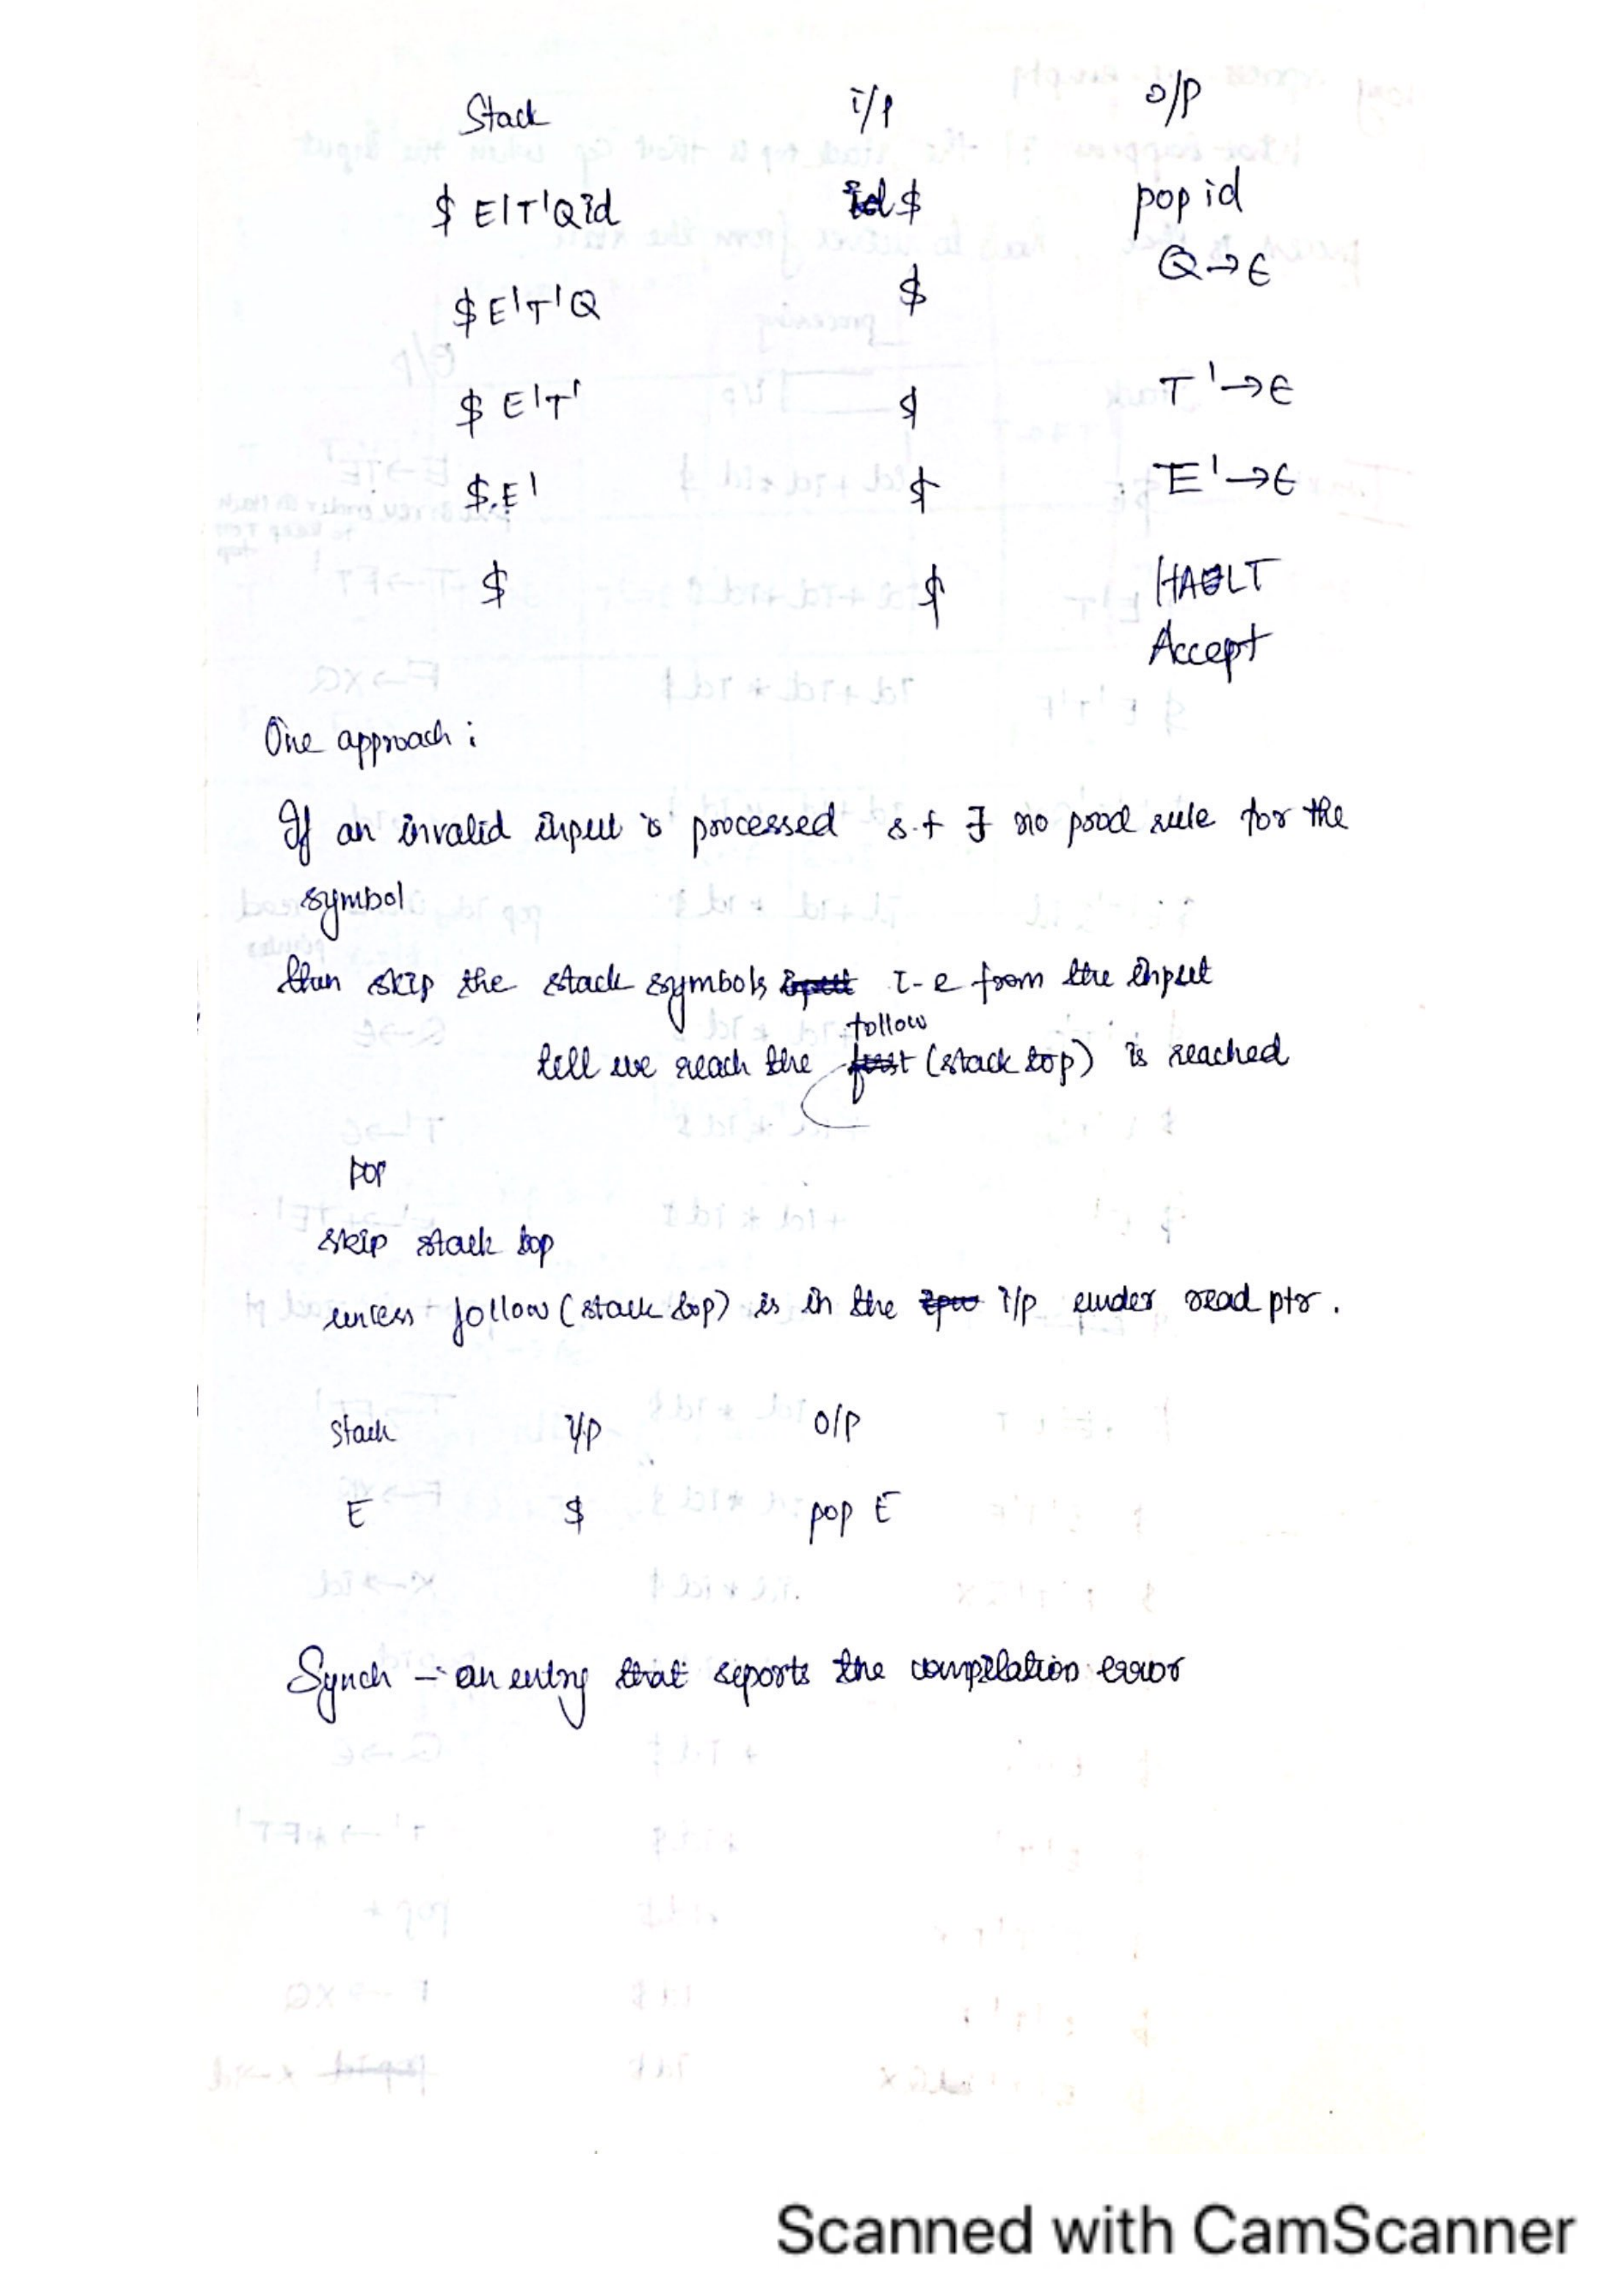 Stack i/p o/p
$ E'T'Qid id $ pop id
$ E'T'Q $ Q→ϵ
$ E'T' $ T'→ϵ
$ E' $ E'→ϵ
$ $ HALT
Accept
One approach :
If an invalid input is processed s.t ∃ no prod rule for the
symbol
then skip the stack symbols input i-e from the input
follow
till we reach the first (stack top) is reached
pop
skip stack top
unless follow (stack top) is in the i/p under read ptr.
Stack i/p o/p
E $ pop E
Synch – an entry that reports the compilation error
Scanned with CamScanner